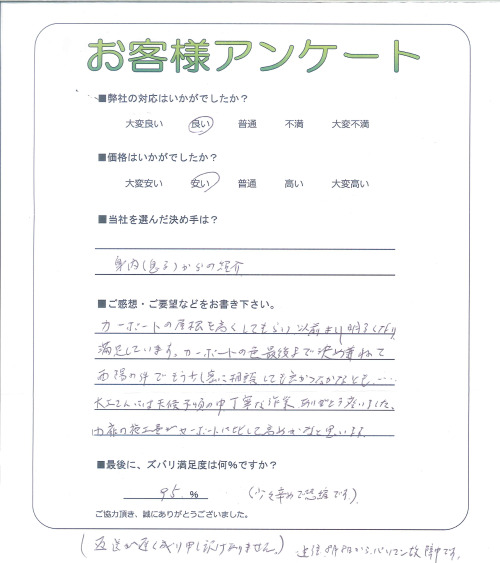 お客様アンケート
■弊社の対応はいかがでしたか？
大変良い　良い　普通　不満　大変不満
■価格はいかがでしたか？
大変安い　安い　普通　高い　大変高い
■当社を選んだ決め手は？
身内(息子)からの紹介
■ご感想・ご要望などをお書き下さい。
カーポートの屋根を高くしてもらい以前より明るくなり
満足しています。カーポートの色最後まで決め兼ねて
西陽の件でもう少し 相談しても良かったかなとも、……
大工さんには天候不順の中丁寧な作業ありがとう座いました。
の施工量がカーポートに比して高めかなと思います
■最後に、ズバリ満足度は何%ですか？
95 %　(少々辛めで恐縮です)
ご協力頂き、誠にありがとうございました。
(返送が遅く成り申し訳けありません。)　からパソコン故障中です。